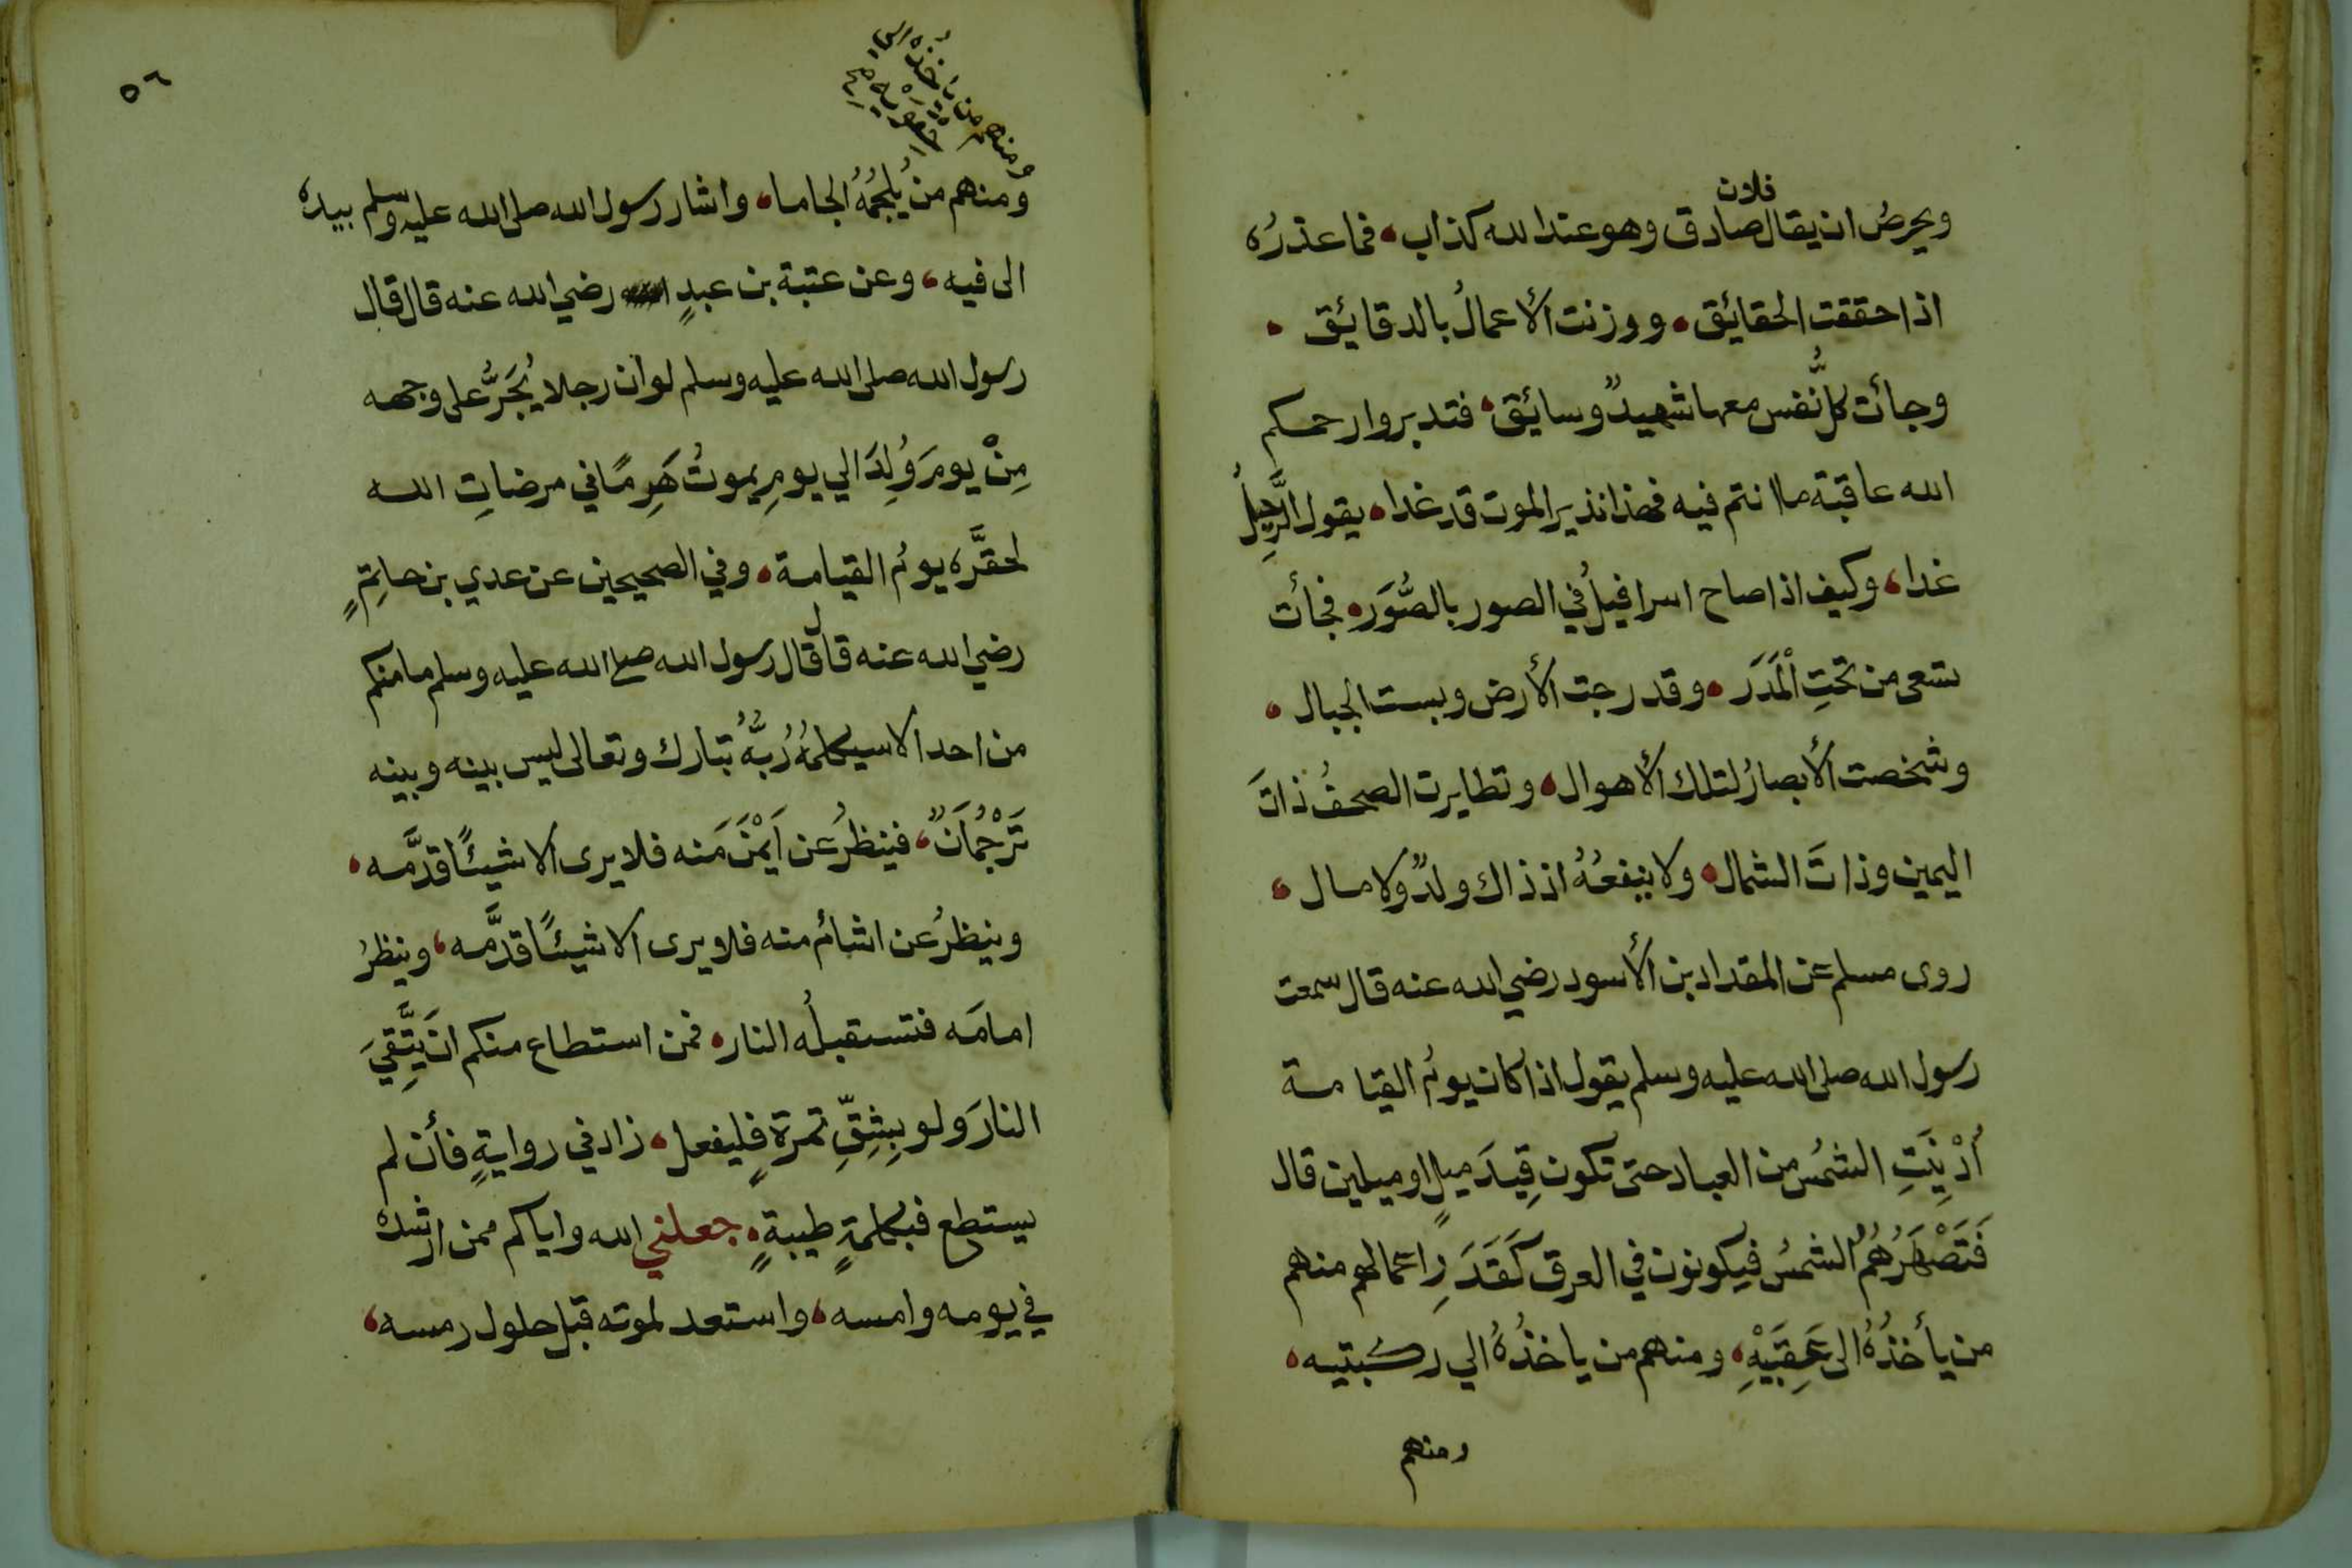 فلان
ويحرصُ ان يقال صادق وهو عند الله كذاب، فما عذرُه
اذا حققت الحقائق، ووزنت الأعمالُ بالدقائق،
وجأت كلُّ نفس معها شهيدٌ وسائق، فتدبروا رحمكم
الله عاقبة ما انتم فيه فهذا نذير الموت قد غدا، يقول الرَّحِيلُ
غدا، وكيف اذا صاح اسرافيلُ في الصور بالصُّوَر، فجأت
تسعى من تحتِ الْمَدَر، وقد رجت الأرض وبست الجبال،
وشخصت الأبصارُ لتلك الأهوال، وتطايرت الصحفُ ذاتَ
اليمين وذاتَ الشمال، ولا ينفعُهُ اذ ذاك ولدٌ ولا مال،
روى مسلم عن المقداد بن الأسود رضي الله عنه قال سمعت
رسول الله صلى الله عليه وسلم يقول اذا كان يومُ القيامة
أُدْنِيَتِ الشمسُ من العباد حتى تكون قِيدَ ميلٍ او ميلين قال
فَتَصْهَرُهُمُ الشمسُ فيكونون في العرق كَقَدَرِ اعمالهم منهم
من يأخذُهُ الى عَقِبَيْهِ، ومنهم من ياخذُهُ الي ركبتيه،
ومنهم
٥٦
ومنهم من يأخُذُه الى
حِقْوَيْهِ صح
ومنهم من يُلْجِمُهُ الجاما، واشار رسول الله صلى الله عليه وسلم بيده
الى فيه، وعن عتبة بن عبدٍ رضي الله عنه قال قال
رسول الله صلى الله عليه وسلم لو ان رجلا يُجَرُّ على وجهه
مِنْ يومَ وُلِدَ الي يومِ يموتُ هَرِمًا في مرضاتِ الله
لحقَّره يومُ القيامة، وفي الصحيحين عن عدي بن حاتِمٍ
رضي الله عنه قال قال رسول الله صلى الله عليه وسلم ما منكم
من احد الا سيكلمُهُ رُبَّهُ تبارك وتعالى ليس بينه وبينه
تَرْجُمَانٌ، فينظرُ عن اَيْمَنَ مَنه فلا يرى الا شيئًا قدَّمه،
وينظرُ عن اشأم منه فلا يرى الا شيئًا قدَّمه، وينظرُ
امامَه فتستقبلُه النار، فمن استطاع منكم ان يَتَّقِيَ
النارَ ولو بِشِقِّ تمرةٍ فليفعل، زاد في روايةٍ فأن لم
يستطع فبكلمةٍ طيبةٍ، جعلني الله واياكم ممن ارشده
في يومه وامسه، واستعد لموته قبل حلول رمسه،